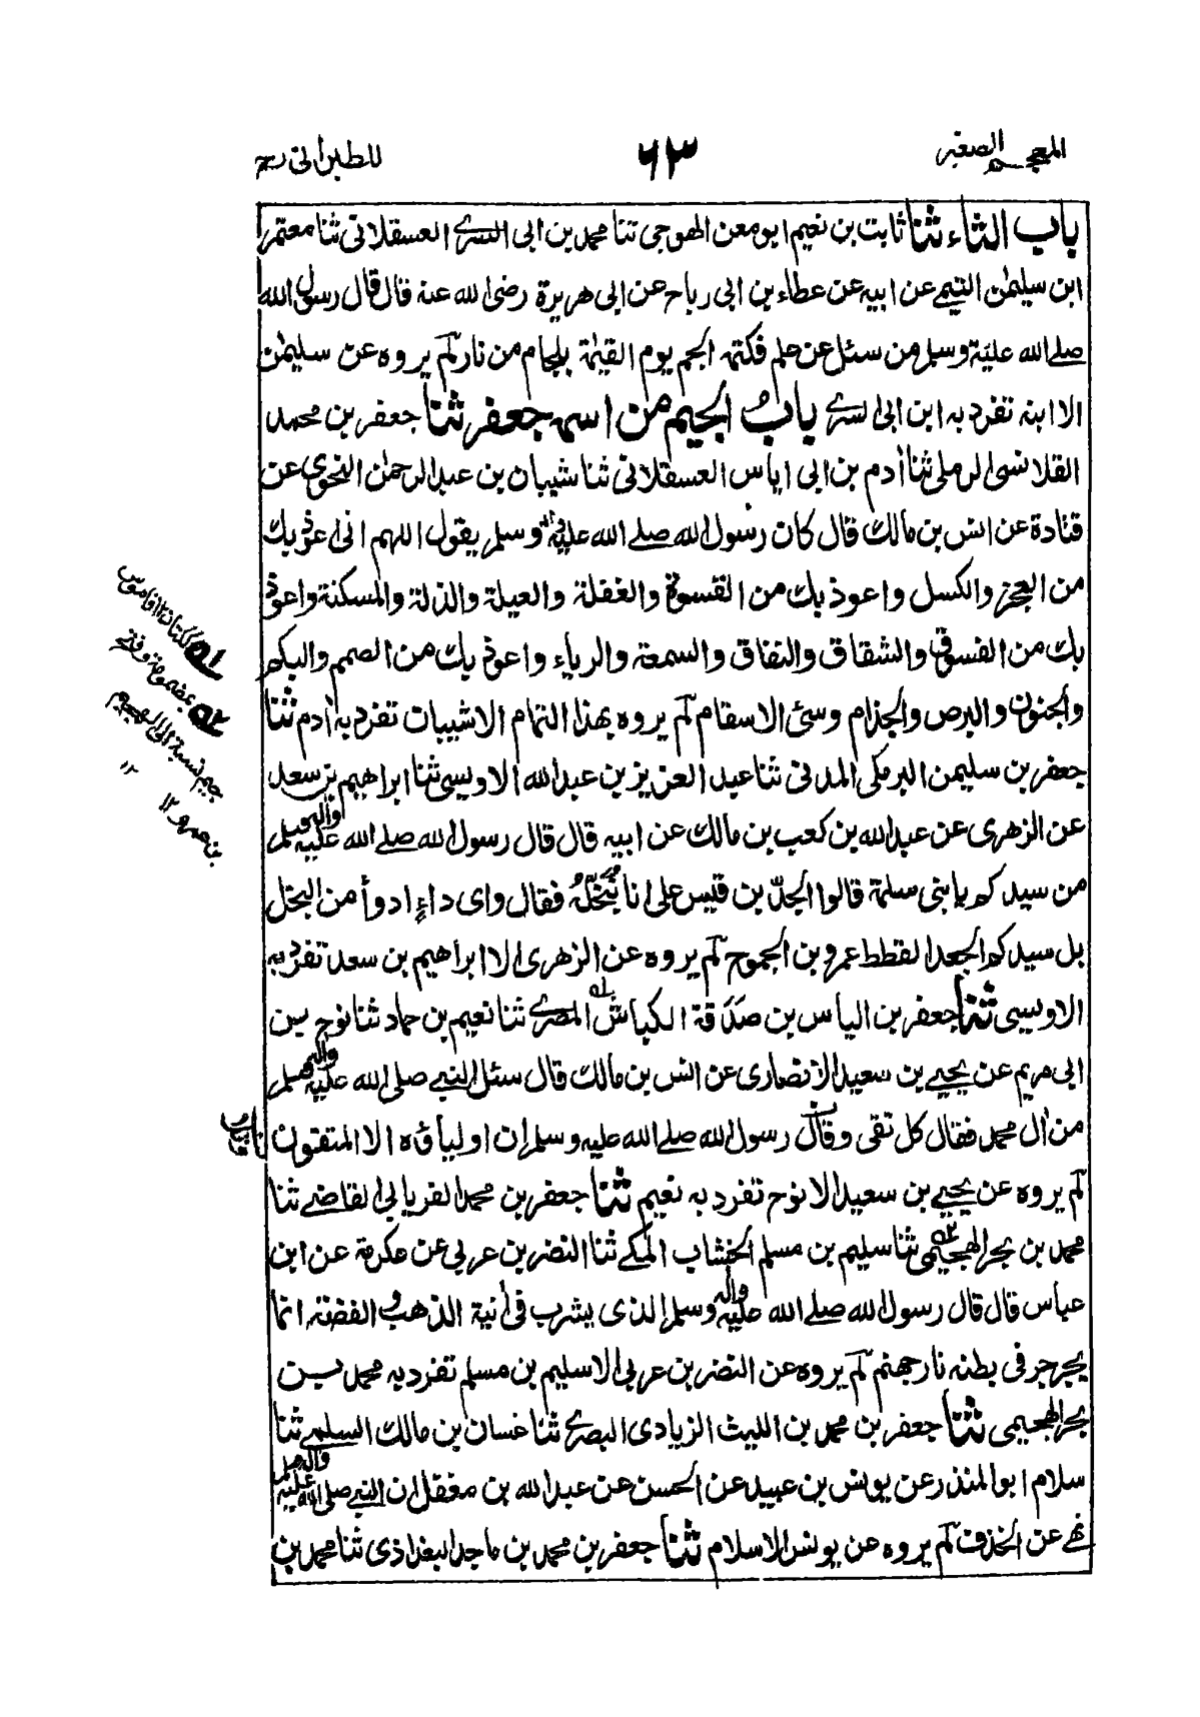 المعجم الصغير
٦٣
للطبراني رح
باب الثاء ثنا ثابت بن نعيم ابو معن الهوجي ثنا محمد بن ابى السرے العسقلانى ثنا معتمر
ابن سليمٰن التيمے عن ابيه عن عطاء بن ابى رباح عن ابى هريرة رضى الله عنه قال قال رسول الله
صلے الله عليه وسلم من سئل عن علم فكتمه الجم يوم القيٰمة بلجام من نار لم يروه عن سليمٰن
الا ابنه تفرد به ابن ابى السرے باب الجيم من اسمه جعفر ثنا جعفر بن محمد
القلانسى الرملى ثنا اٰدم بن ابى اياس العسقلانى ثنا شيبان بن عبد الرحمٰن النحوى عن
قتادة عن انس بن مالك قال كان رسول الله صلے الله عليه واله وسلم يقول اللهم انى اعوذ بك
من العجز والكسل واعوذ بك من القسوة والغفلة والعيلة والذلة والمسكنة واعوذ
بك من الفسوق والشقاق والنفاق والسمعة والرياء واعوذ بك من الصمم والبكم
والجنون والبرص والجذام وسئ الاسقام لم يروه بهذا التمام الا شيبان تفرد به اٰدم ثنا
جعفر بن سليمن البرمكى المدنى ثنا عبد العزيز بن عبد الله الاويسى ثنا ابراهيم بن سعد
عن الزهرى عن عبد الله بن كعب بن مالك عن ابيه قال قال رسول الله صلے الله عليه واله وسلم
من سيدكم يا بنى سلمة قالوا الجدّ بن قيس على انا نُبَخِّلُهُ فقال واى داءٍ ادوأ من البخل
بل سيدكم الجعد القطط عمرو بن الجموح لم يروه عن الزهرى الا ابراهيم بن سعد تفرد به
الاويسى ثنا جعفر بن الياس بن صَدَقة الكباش له المصرے ثنا نعيم بن حماد ثنا نوح بن
ابى مريم عن يحيے بن سعيد الانصارى عن انس بن مالك قال سئل النبے صلى الله عليه واله وسلم
من اٰل محمد فقال كل تقى وقال رسول الله صلے الله عليه وسلم ان اولياؤه الا المتقون
لم يروه عن يحيے بن سعيد الا نوح تفرد به نعيم ثنا جعفر بن محمد الفريابي القاضے ثنا
محمد بن بحر الهجيمى ثنا سليم بن مسلم الخشاب المكے ثنا النضر بن عربي عن عكرمة عن ابن
عباس قال قال رسول الله صلے الله عليه واله وسلم الذى يشرب فى اٰنية الذهب والفضة انما
يجرجر فى بطنه نار جهنم لم يروه عن النضر بن عربى الا سليم بن مسلم تفرد به محمد بن
بحر الهجيمى ثنا جعفر بن محمد بن الليث الزيادى البصرے ثنا غسان بن مالك السلمے ثنا
سلام ابو المنذر عن يونس بن عبيد عن الحسن عن عبد الله بن مغفل ان النبے صلى الله عليه واله وسلم
نهے عن الخذف لم يروه عن يونس الا سلام ثنا جعفر بن محمد بن ماجد البغداذى ثنا محمد بن
له ككتان ١٢ قاموس
بضمومة وفتح
جيم نسبة الى الهجيم
بن عمرو ١٢
١٢